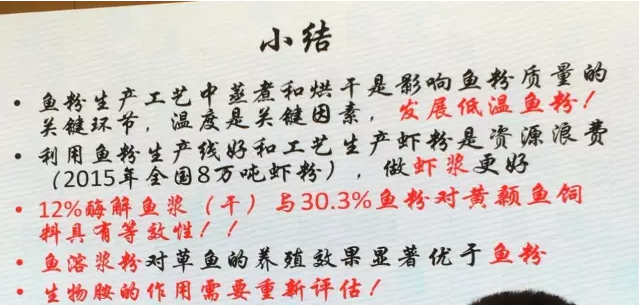 小结
• 鱼粉生产工艺中蒸煮和烘干是影响鱼粉质量的
关键环节，温度是关键因素，发展低温鱼粉！
• 利用鱼粉生产线好和工艺生产虾粉是资源浪费
（2015年全国8万吨虾粉），做虾浆更好
• 12%酶解鱼浆（干）与30.3%鱼粉对黄颡鱼饲
料具有等效性！！
• 鱼溶浆粉对草鱼的养殖效果显著优于鱼粉
• 生物胺的作用需要重新评估！